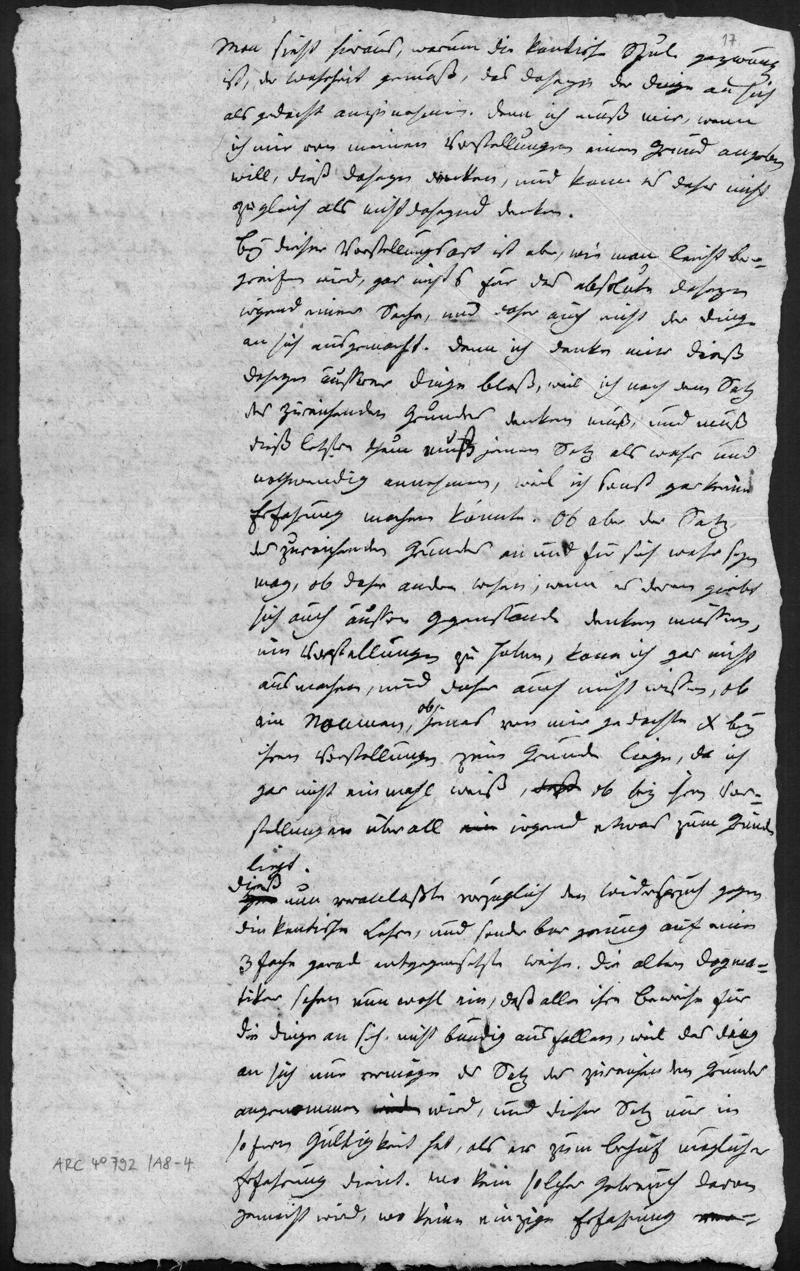 17
Man sieht hieraus, warum die kantische Schule gezwungen
ist, der Wahrheit gemäß, das Daseyn der Dinge an sich
als gedacht anzunehmen. Denn ich muß mir, wenn
ich mir von meinen Vorstellungen einen Grund angeben
will, dieß Daseyn denken, und kann es daher nicht
zugleich als nicht daseyend denken.
Bey dieser Vorstellungsart ist aber, wie man leicht be-
greifen wird, gar nichts für das absolute Daseyn
irgend einer Sache, und daher auch nicht der Dinge
an sich ausgemacht. Denn ich denke mir dieß
Daseyn äusserer Dinge bloß, weil ich nach dem Satz
des zureichenden Grundes denken muß, und muß
dieß letztere thun jenen Satz als wahr und
nothwendig annehmen, weil ich sonst gar keine
Erfahrung machen könnte. Ob aber der Satz
des zureichenden Grundes an und für sich wahr seyn
mag, ob daher andere Wesen, wenn es deren giebt
sich auch äussere Gegenstände denken müssen,
um Vorstellungen zu haben, kann ich gar nicht
ausmachen, und daher auch nicht wissen, ob
ein Noumen, ob jenes von mir gedachte X bey
ihren Vorstellungen zum Grunde liege, da ich
gar nicht einmahl weiß, ob bey ihren Vor-
stellungen überall irgend etwas zum Grunde
liegt.
Dieß nun veranlaßte vorzüglich den Widerspruch gegen
die kantische Lehre, und sonderbar genung auf eine
3fache gerad entgegengesetzte Weise. Die alten Dogma-
tiker sehen nun wohl ein, daß alle ihre Beweise für
die Dinge an sich nicht bündig ausfallen, weil das Ding
an sich nur vermöge des Satz des zureichenden Grundes
angenommen wird, und dieser Satz nur in
sofern Gültigkeit hat, als er zum Behuf möglicher
Erfahrung dient. Wo kein solcher Gebrauch davon
gemacht wird, wo keine einzige Erfahrung
ARC 4° 792 /A8-4